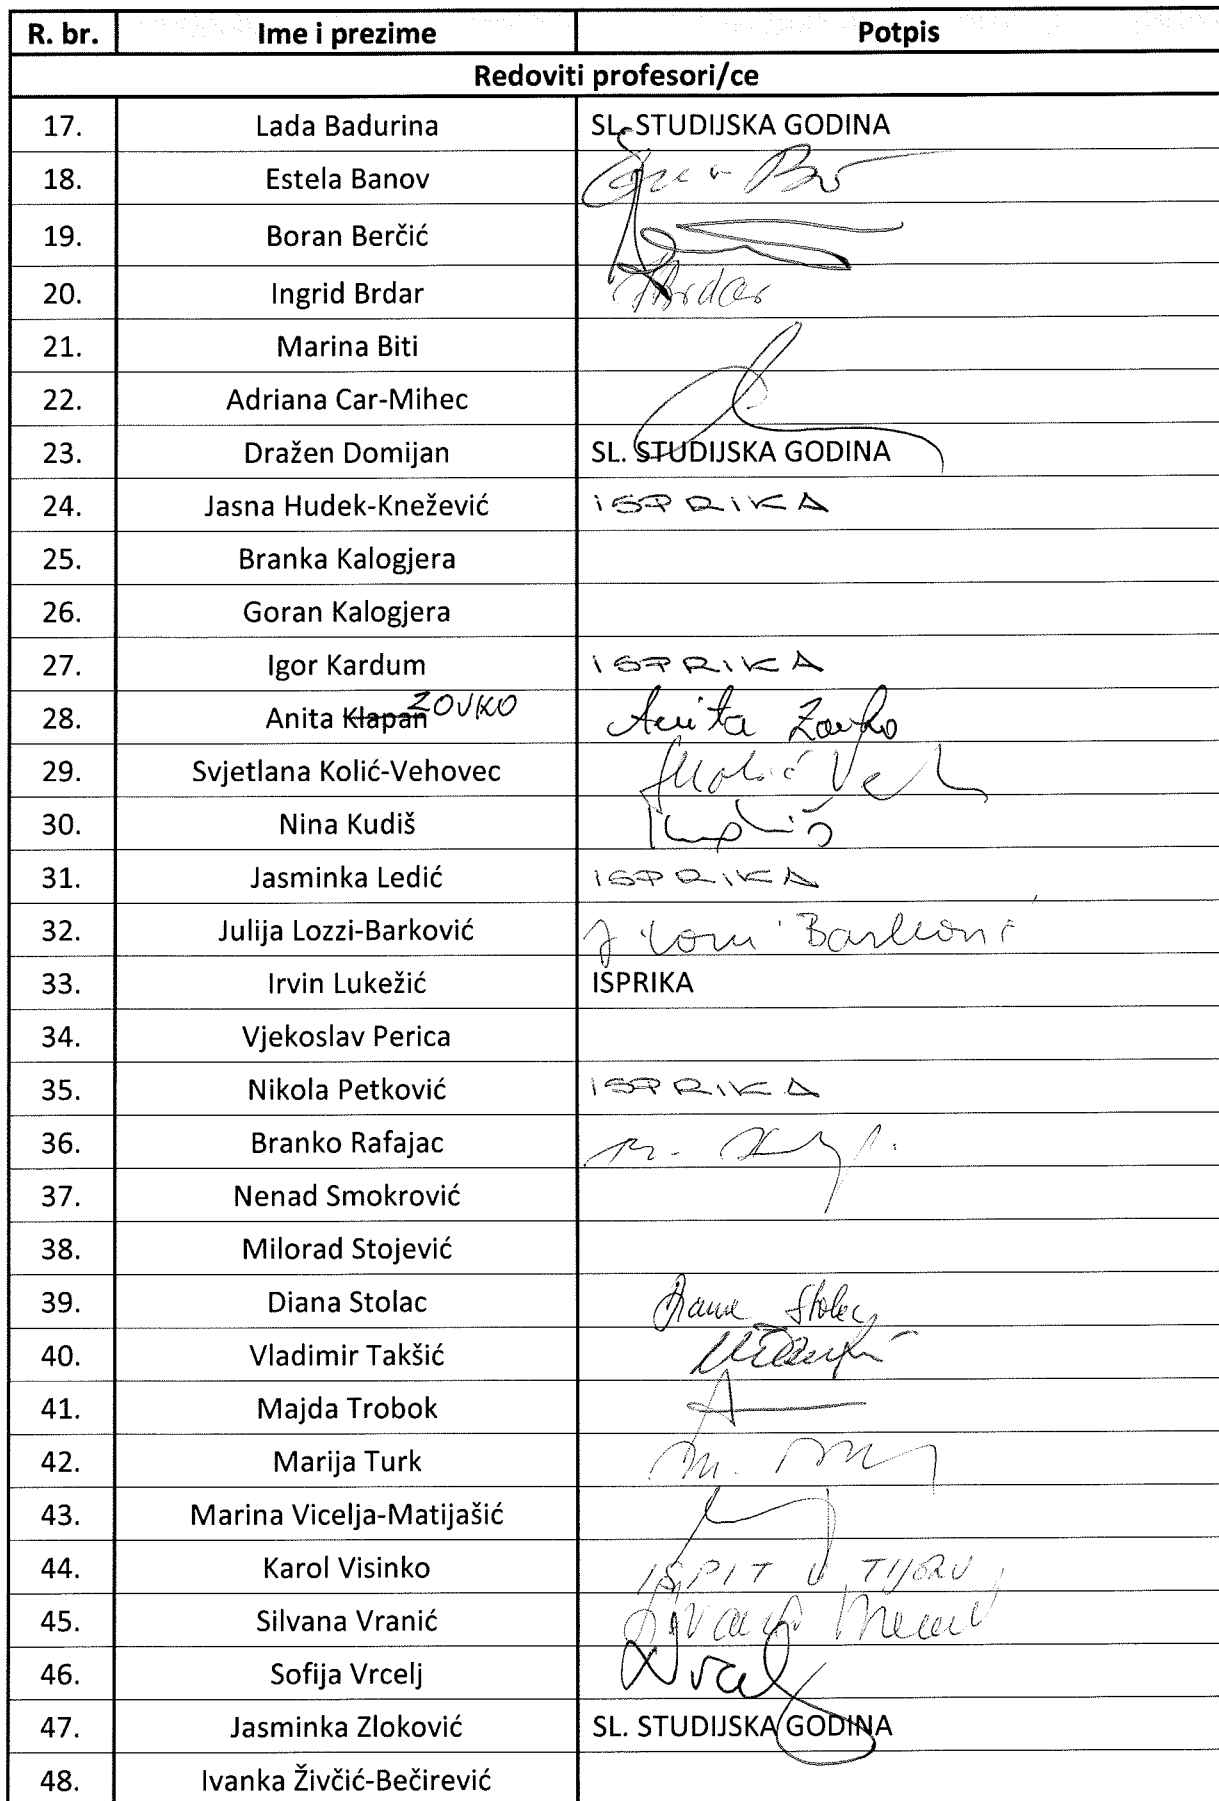 R. br. Ime i prezime Potpis
Redoviti profesori/ce
17. Lada Badurina SL. STUDIJSKA GODINA
18. Estela Banov
19. Boran Berčić
20. Ingrid Brdar Brdar
21. Marina Biti
22. Adriana Car-Mihec
23. Dražen Domijan SL. STUDIJSKA GODINA
24. Jasna Hudek-Knežević ISPRIKA
25. Branka Kalogjera
26. Goran Kalogjera
27. Igor Kardum ISPRIKA
28. Anita Klapan ZOVKO Anita Zovko
29. Svjetlana Kolić-Vehovec
30. Nina Kudiš
31. Jasminka Ledić ISPRIKA
32. Julija Lozzi-Barković
33. Irvin Lukežić ISPRIKA
34. Vjekoslav Perica
35. Nikola Petković ISPRIKA
36. Branko Rafajac
37. Nenad Smokrović
38. Milorad Stojević
39. Diana Stolac Diana Stolac
40. Vladimir Takšić
41. Majda Trobok
42. Marija Turk
43. Marina Vicelja-Matijašić
44. Karol Visinko ISPIT U TIJEKU
45. Silvana Vranić
46. Sofija Vrcelj
47. Jasminka Zloković SL. STUDIJSKA GODINA
48. Ivanka Živčić-Bečirević